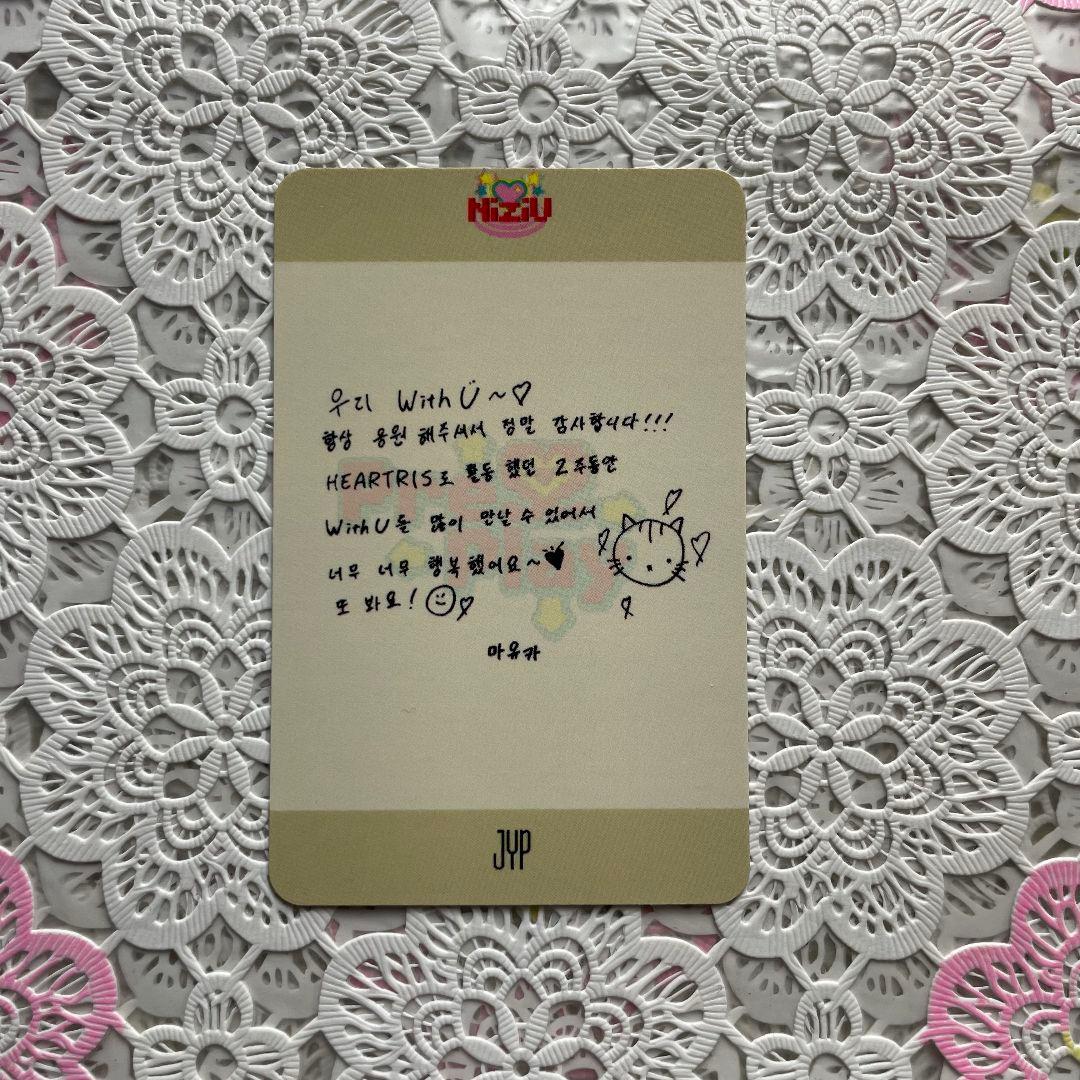 NiziU
우리 WithU~♡
항상 응원 해주셔서 정말 감사합니다!!!
HEARTRIS로 활동 했던 2주동안
WithU를 많이 만날 수 있어서
너무 너무 행복했어요~♥
또 봐요!
마유카
Press Play
JYP